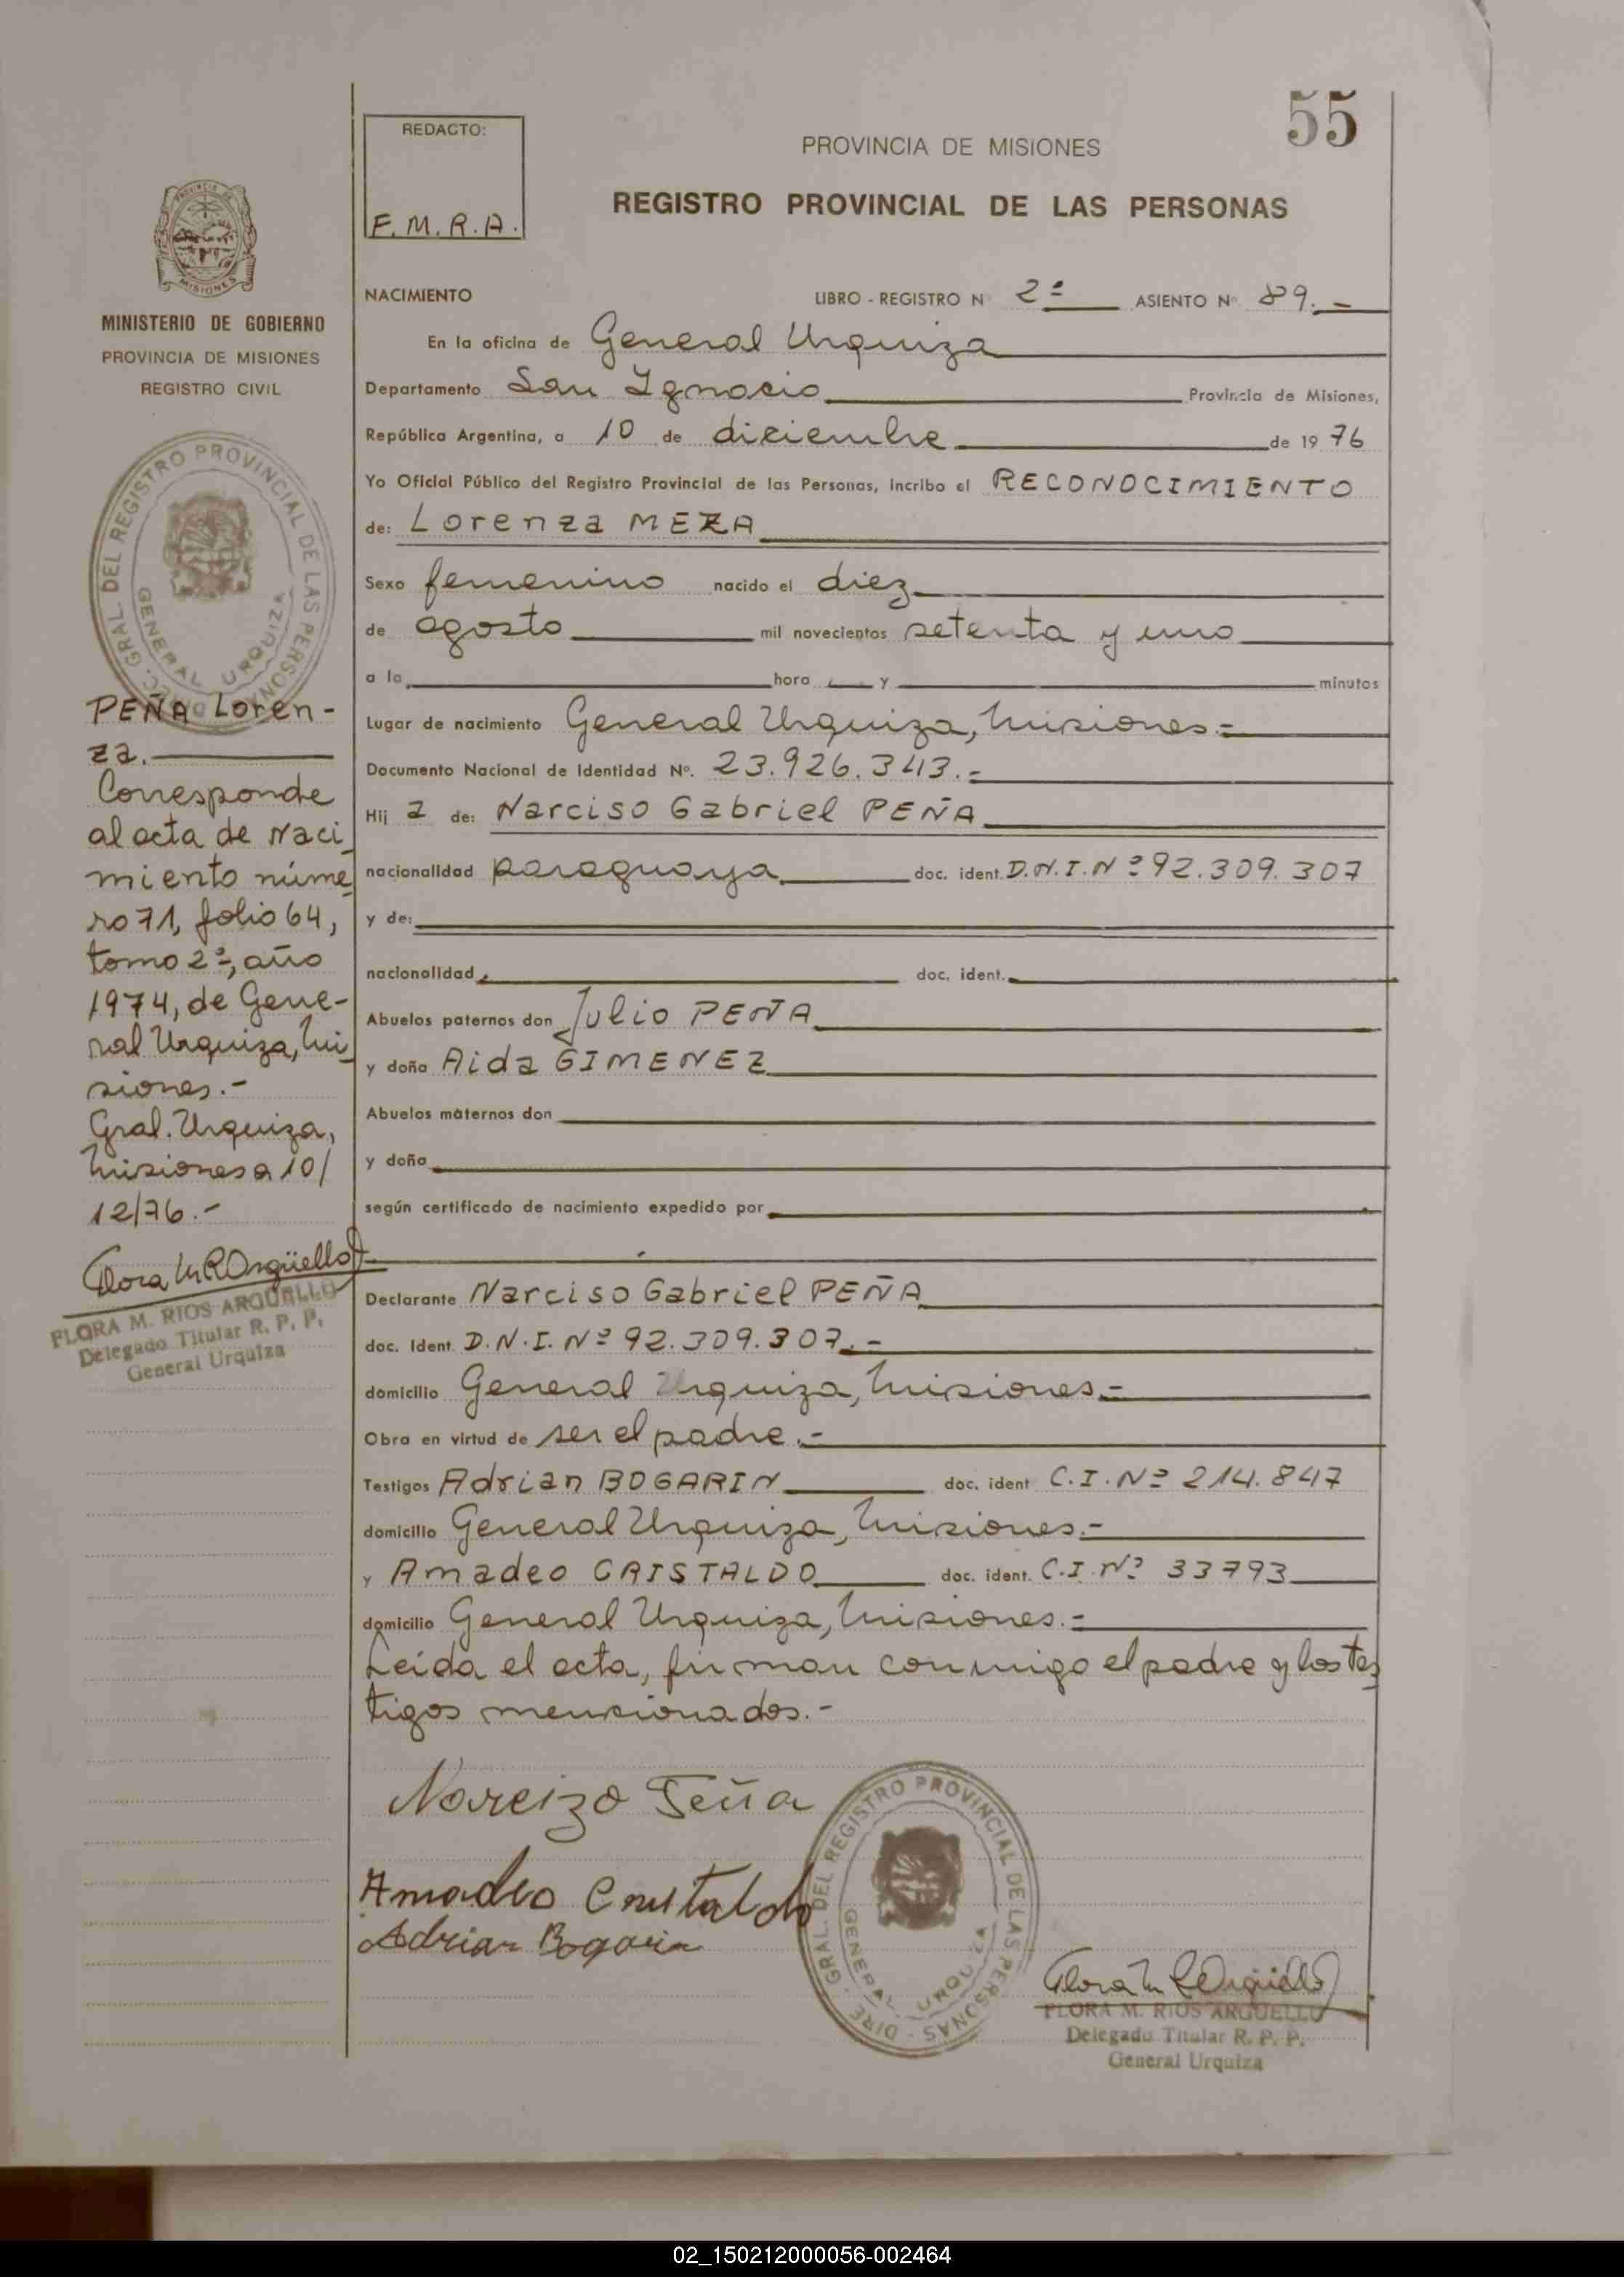 55
REDACTO:
F. M. R. A.
PROVINCIA DE MISIONES
REGISTRO PROVINCIAL DE LAS PERSONAS
MISIONES
MINISTERIO DE GOBIERNO
PROVINCIA DE MISIONES
REGISTRO CIVIL
GRAL. DEL REGISTRO PROVINCIAL DE LAS PERSONAS
GENERAL URQUIZA
PEÑA Loren-
za.
Corresponde
al acta de Naci
miento núme
ro 71, folio 64,
tomo 2º, año
1974, de Gene-
ral Urquiza, Mi
siones.-
Gral. Urquiza,
Misiones a 10/
12/76.-
Flora M R Argüello
FLORA M. RIOS ARGUELLO
Delegado Titular R. P. P.
General Urquiza
NACIMIENTO LIBRO - REGISTRO Nº 2º ASIENTO Nº 89.-
En la oficina de General Urquiza
Departamento San Ignacio Provincia de Misiones,
República Argentina, a 10 de diciembre de 19 76
Yo Oficial Público del Registro Provincial de las Personas, incribo el RECONOCIMIENTO
de: Lorenza MEZA
Sexo femenino nacido el diez
de agosto mil novecientos setenta y uno
a la hora y minutos
Lugar de nacimiento General Urquiza, Misiones.-
Documento Nacional de Identidad Nº. 23.926.343.-
Hij a de: Narciso Gabriel PEÑA
nacionalidad paraguaya doc. ident. D.N.I. Nº 92.309.307
y de:
nacionalidad doc. ident.
Abuelos paternos don Julio PEÑA
y doña Aida GIMENEZ
Abuelos maternos don
y doña
según certificado de nacimiento expedido por
Declarante Narciso Gabriel PEÑA
doc. Ident. D.N.I. Nº 92.309.307.-
domicilio General Urquiza, Misiones.-
Obra en virtud de ser el padre.-
Testigos Adrian BOGARIN doc. ident C.I. Nº 214.847
domicilio General Urquiza, Misiones.-
y Amadeo CRISTALDO doc. ident. C.I. Nº 33793
domicilio General Urquiza, Misiones.-
Leida el acta, firman conmigo el padre y los tes
tigos mencionados.-
Narcizo Peña
Amadeo Cristaldo
Adrian Bogarin
DIRE. GRAL. DEL REGISTRO PROVINCIAL DE LAS PERSONAS -
GENERAL URQUIZA
Flora M R Argüello
FLORA M. RIOS ARGUELLO
Delegado Titular R. P. P.
General Urquiza
02_150212000056-002464